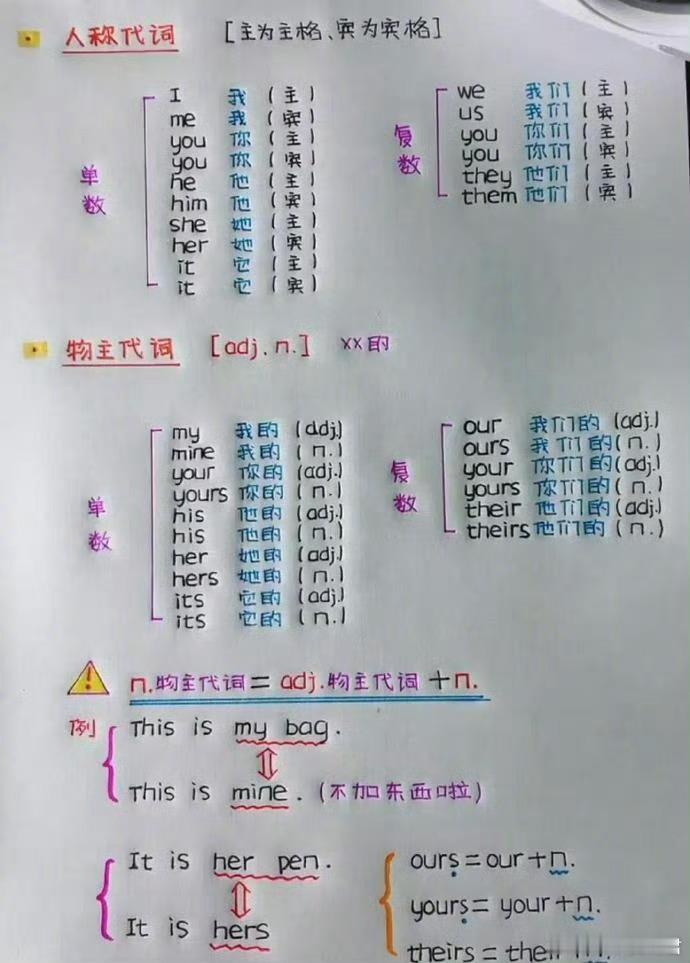 人称代词 [主为主格、宾为宾格]
单数
I 我 (主)
me 我 (宾)
you 你 (主)
you 你 (宾)
he 他 (主)
him 他 (宾)
she 她 (主)
her 她 (宾)
it 它 (主)
it 它 (宾)
复数
we 我们 (主)
us 我们 (宾)
you 你们 (主)
you 你们 (宾)
they 他们 (主)
them 他们 (宾)
物主代词 [adj. n.] xx的
单数
my 我的 (adj.)
mine 我的 (n.)
your 你的 (adj.)
yours 你的 (n.)
his 他的 (adj.)
his 他的 (n.)
her 她的 (adj.)
hers 她的 (n.)
its 它的 (adj.)
its 它的 (n.)
复数
our 我们的 (adj.)
ours 我们的 (n.)
your 你们的 (adj.)
yours 你们的 (n.)
their 他们的 (adj.)
theirs 他们的 (n.)
n.物主代词 = adj.物主代词 + n.
例
This is my bag.
This is mine. (不加东西啦)
It is her pen.
It is hers
ours = our + n.
yours = your + n.
theirs =